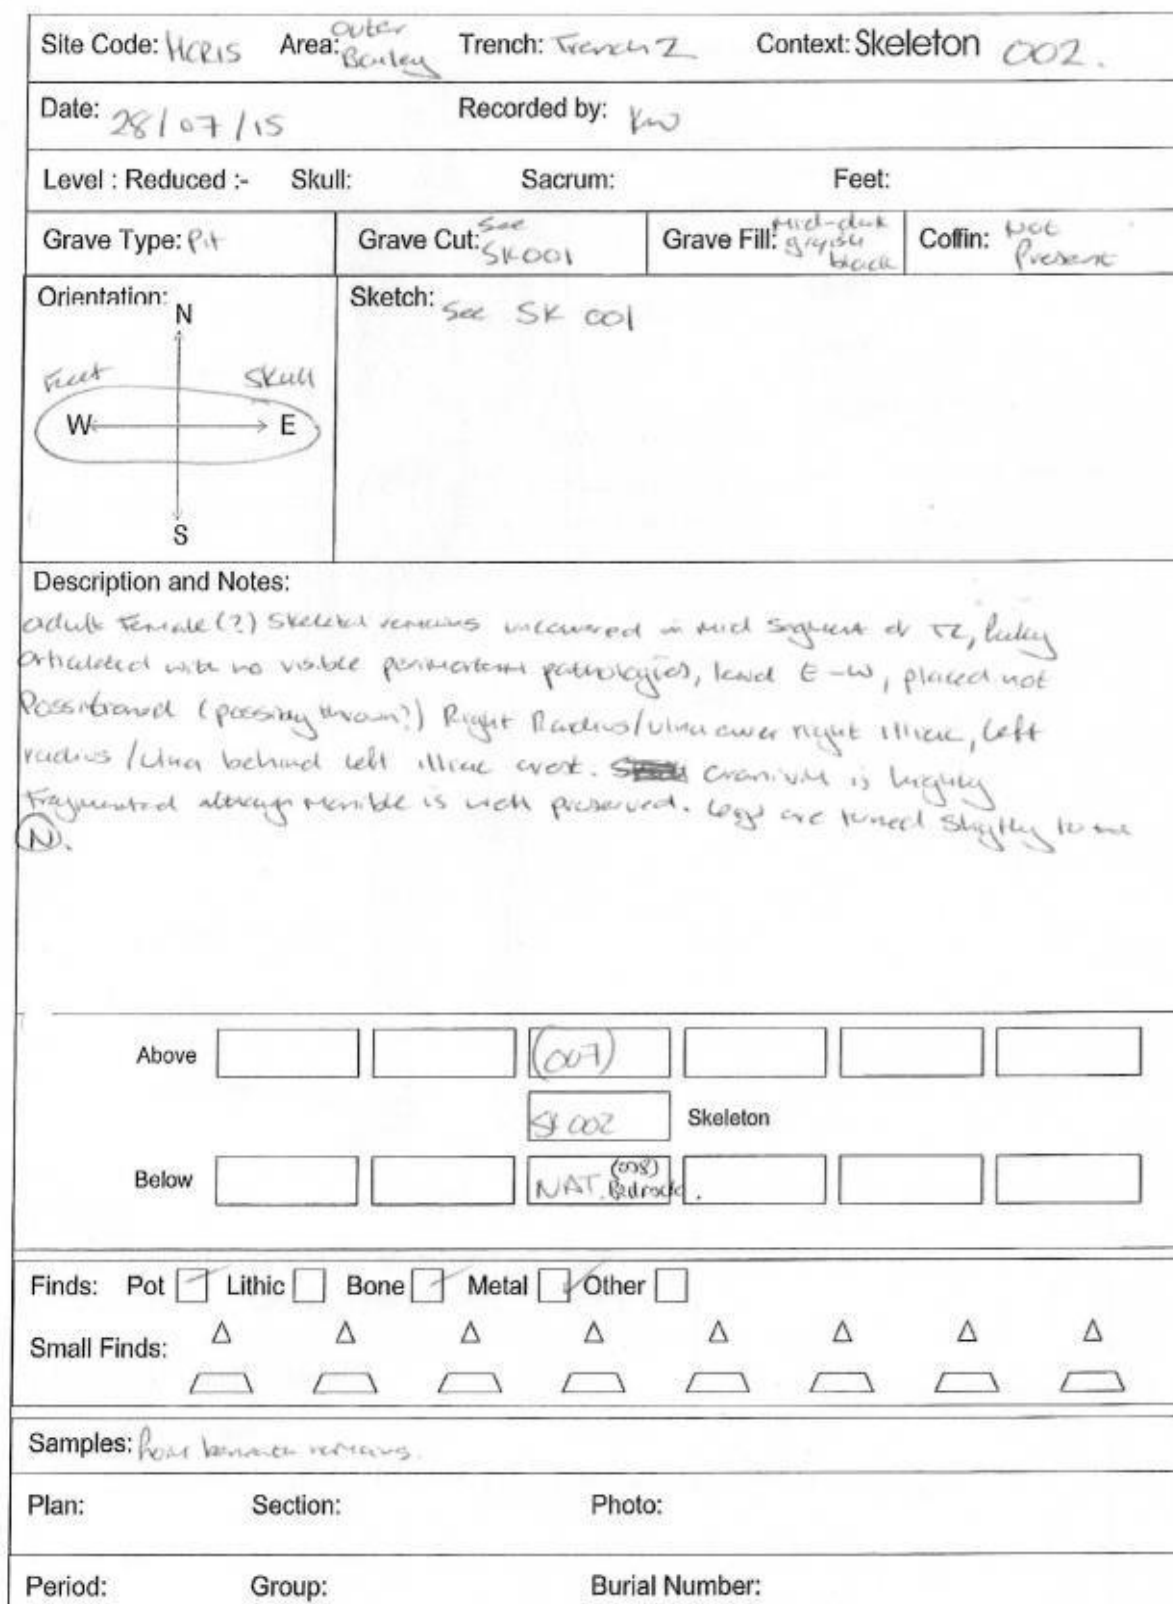 Site Code: HCR15 Area: Outer Bailey Trench: Trench 2 Context: Skeleton 002.
Date: 28/07/15 Recorded by: KW
Level : Reduced :- Skull: Sacrum: Feet:
Grave Type: Pit Grave Cut: See SK001 Grave Fill: Mid-dark greyish black Coffin: Not Present
Orientation: Sketch: See SK 001
N
Feet Skull
W E
S
Description and Notes:
adult Female (?) Skeletal remains uncovered in mid segment of T2,
articulated with no visible perimortem pathologies, E-W, placed not
(possibly thrown?) Right Radius/Ulna over right illiac, Left
radius/Ulna behind left illiac crest. Cranium is highly
Fragmented although is well preserved. Legs are turned slightly to the
N.
Above (007)
SK 002 Skeleton
Below NAT. (008) Bedrock.
Finds: Pot Lithic Bone Metal Other
Small Finds:
Samples: from remains.
Plan: Section: Photo:
Period: Group: Burial Number: